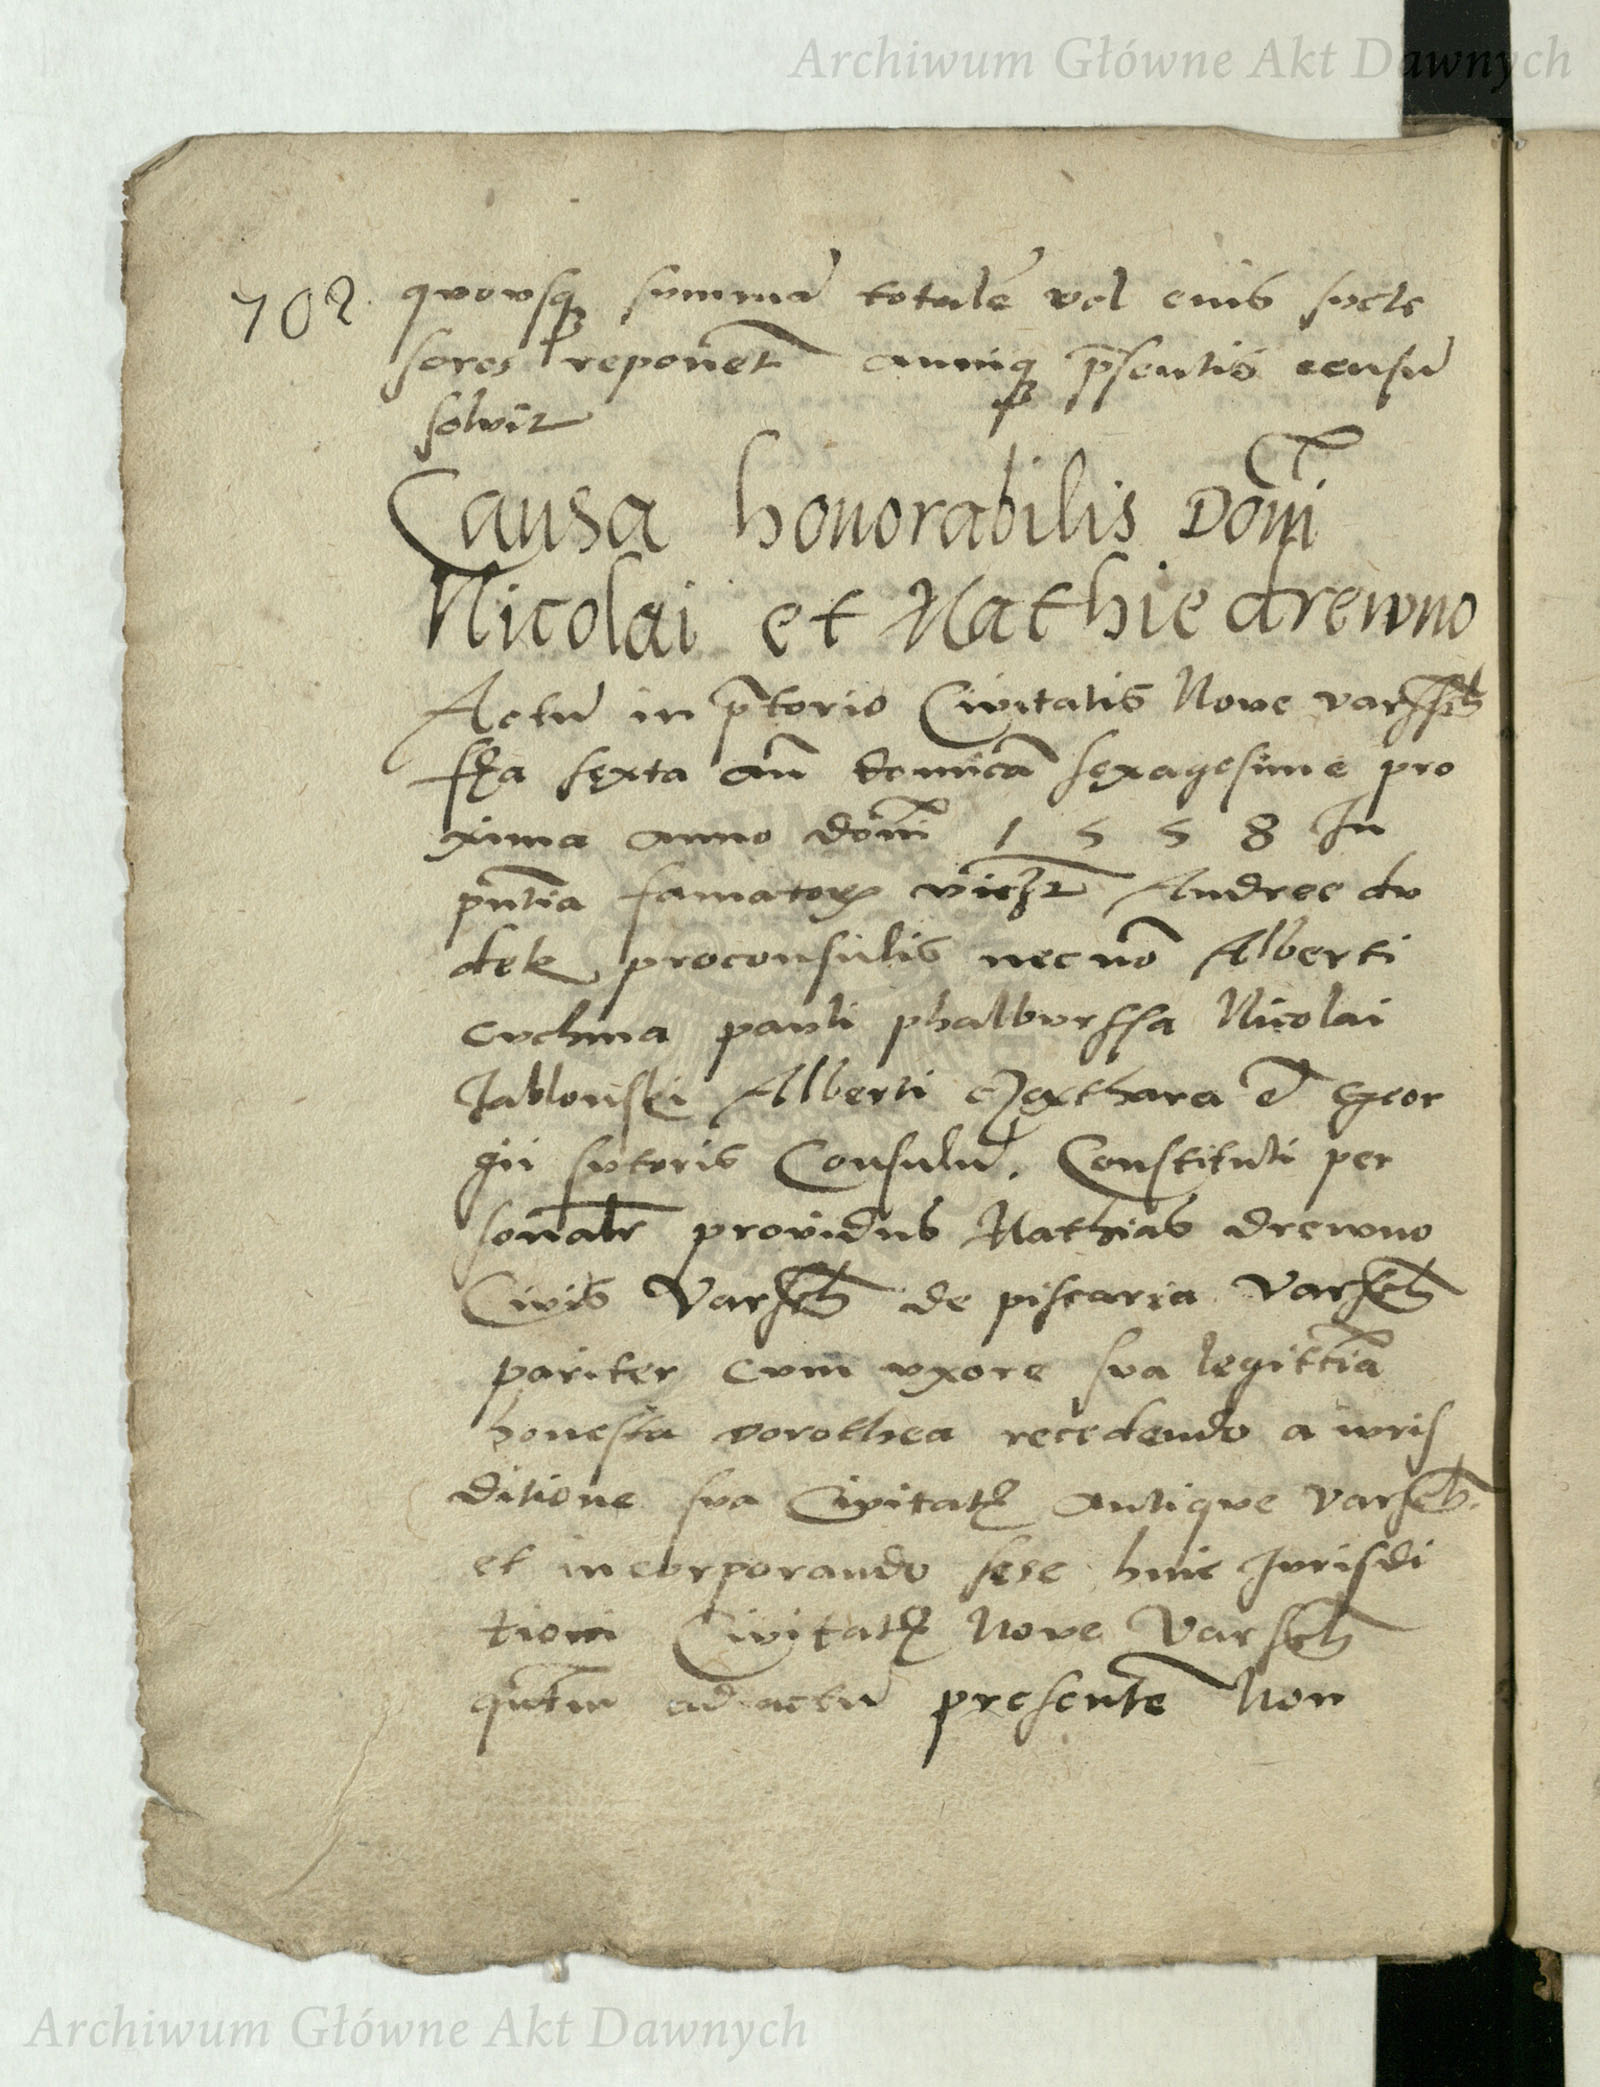 Archiwum Główne Akt Dawnych
702
quousq summā totalē vel eius succes
sores reponēt annuq p̄sentis censū
solvit
Causa honorabilis Dom̄i
Nicolai et Mathie drewno
Actū in p̄torio Civitatis Nove varssch
ffia sexta an̄ domīcā sexagesime pro
xima anno dom̄i 1558 In
p̄ntia famator Andree du
dek proconsulis necnō Alberti
cuchna pauli phalburssa Nicolai
Jablonski Alberti et Geor
gii sutoris Consulū. Constituti per
sonalr providus Mathias drewno
Civis Varsch de piscaria Varsch
pariter cum uxore sua legittīa
honesta dorothea recedendo a iuris
ditione sua Civitatis antique Varsch.
et incorporando sese huic Jurisdi
tioni Civitatis Nove Varsch
ad actū presentē Non
Archiwum Główne Akt Dawnych